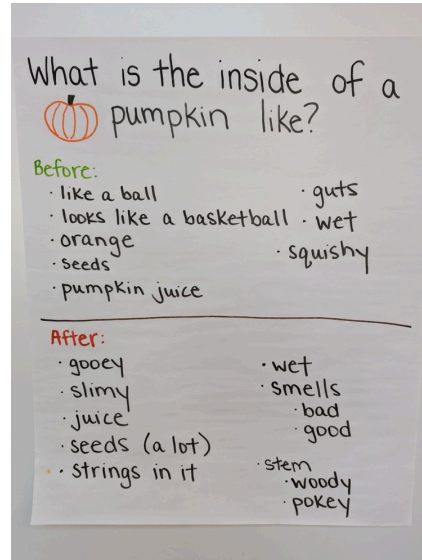 What is the inside of a
pumpkin like?
Before:
· like a ball
· looks like a basketball
· orange
· seeds
· pumpkin juice
· guts
· wet
· squishy
After:
· gooey
· slimy
· juice
· seeds (a lot)
· strings in it
· wet
· smells
· bad
· good
· stem
· woody
· pokey